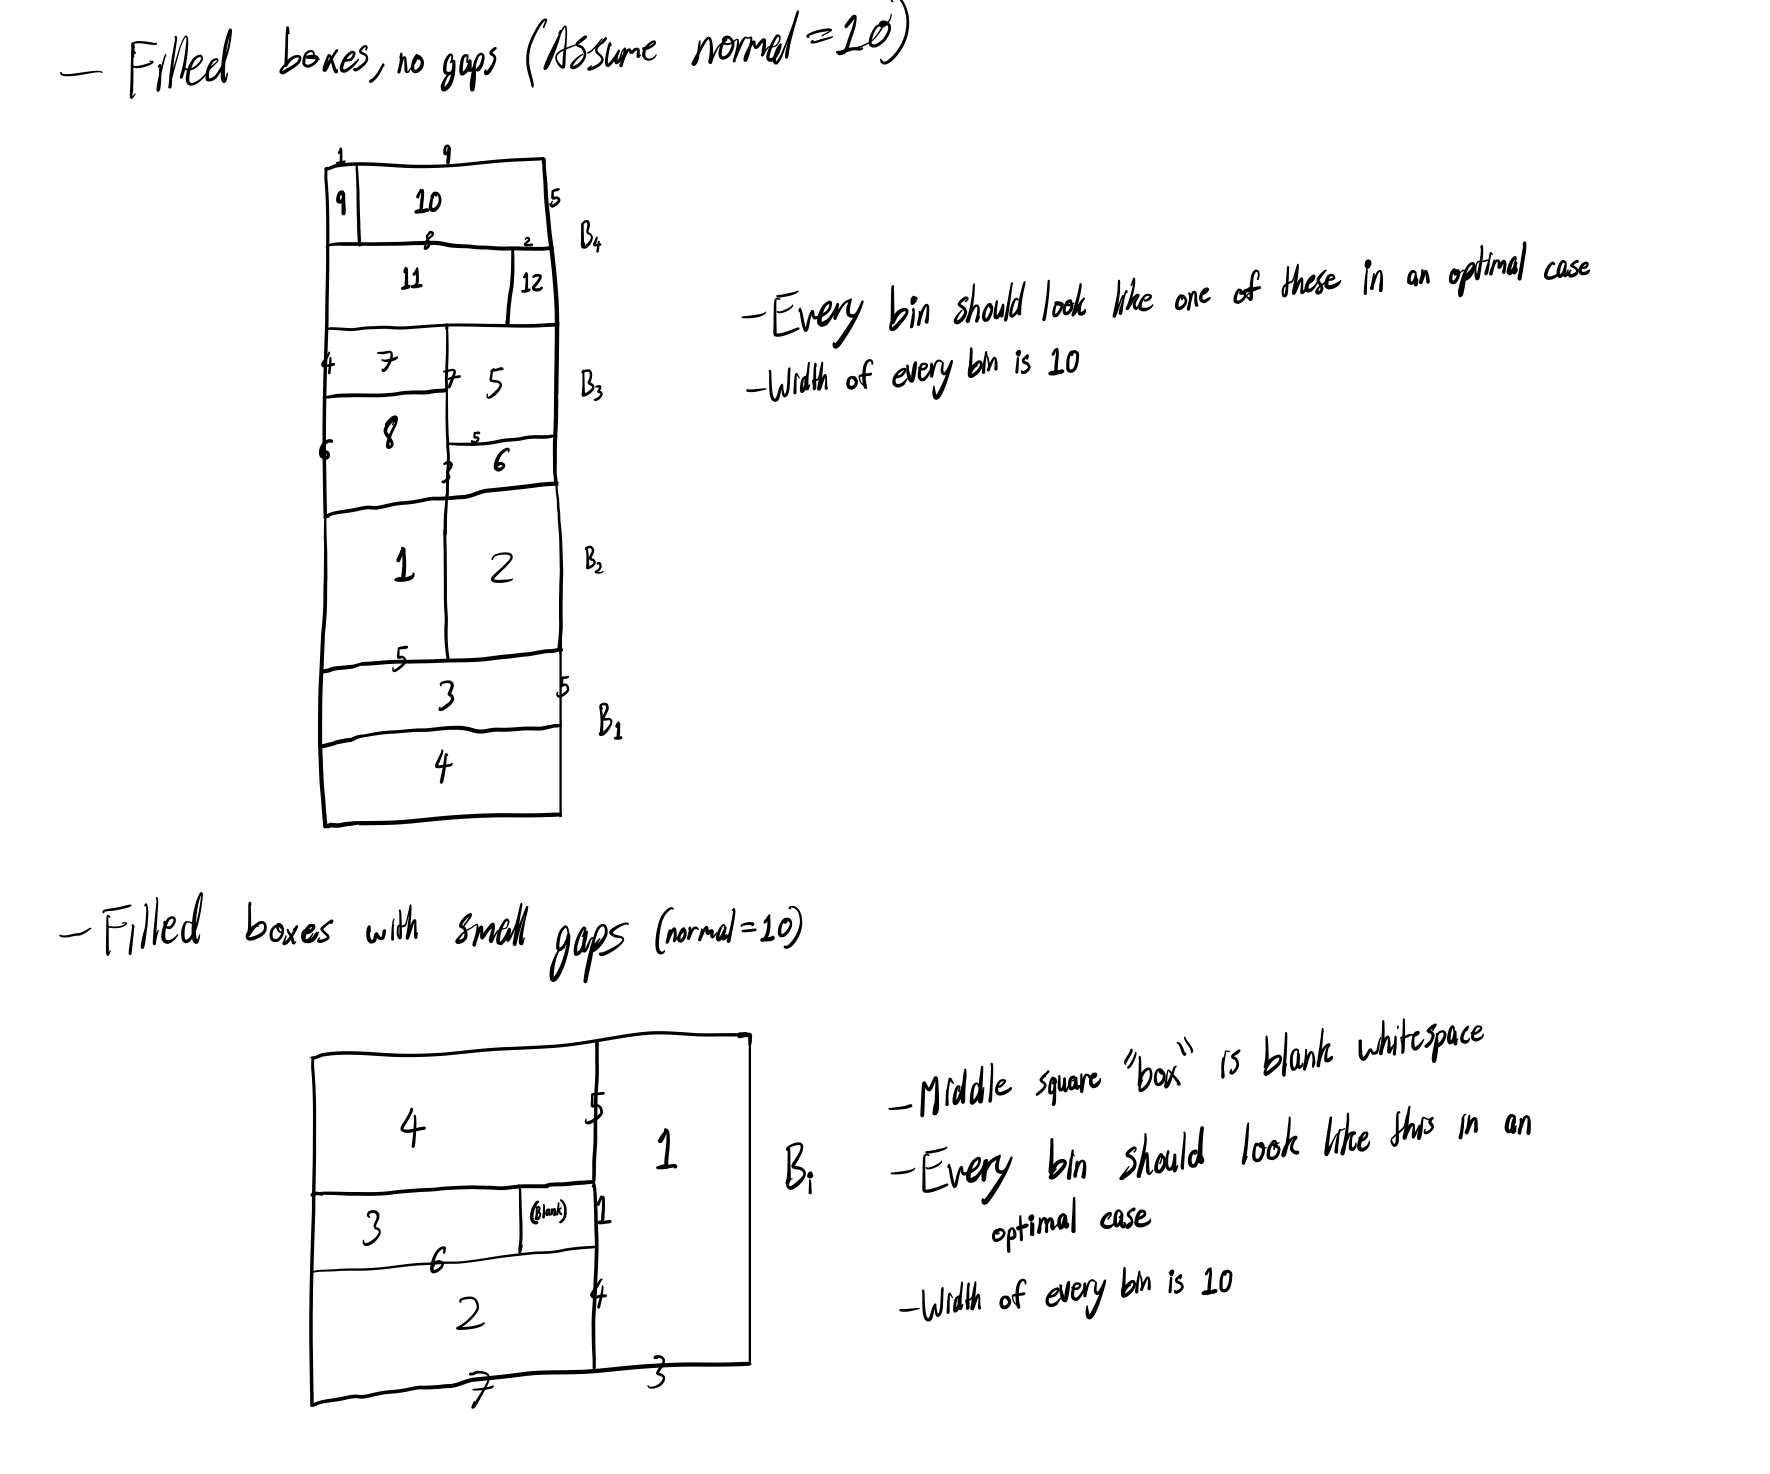 — Filled boxes, no gaps (Assume normal = 10)
1 9
9 10 5
B4
8 2
11 12
4 7 7 5 B3
8 5
6 3 6
1 2 B2
5
3 5
B1
4
— Every bin should look like one of these in an optimal case
— Width of every bin is 10
— Filled boxes with small gaps (normal = 10)
4 5 1 Bi
3 (Blank) 1
6
2 4
7 3
— Middle square "box" is blank whitespace
— Every bin should look like this in an
optimal case
— Width of every bin is 10